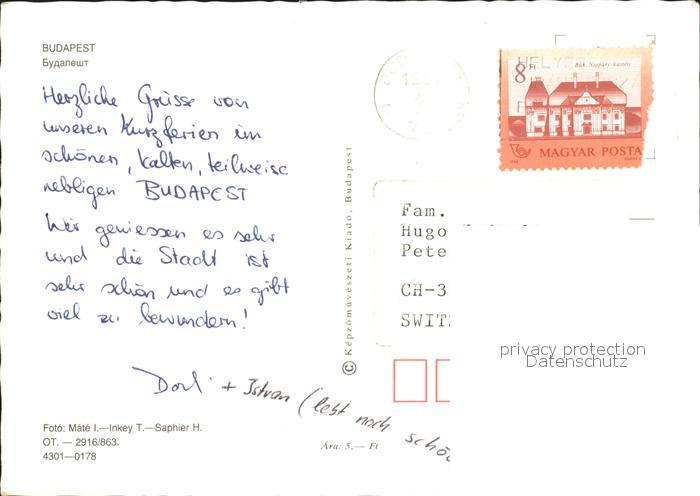 BUDAPEST
Будапешт
Herzliche Grüsse von
unseren Kurzferien im
schönen, kalten, teilweise
nebligen BUDAPEST
Wir geniessen es sehr
und die Stadt ist
sehr schön und es gibt
viel zu bewundern!
Dorli + Istvan (lebt noch schö
Fotó: Máté I.—Inkey T.—Saphier H.
OT. — 2916/863.
4301—0178
Ára: 5,— Ft
© Képzőművészeti Kiadó, Budapest
8 Ft
Bük, Szapáry-kastély
MAGYAR POSTA
Fam.
Hugo
Pete
CH-3
SWIT
privacy protection
Datenschutz